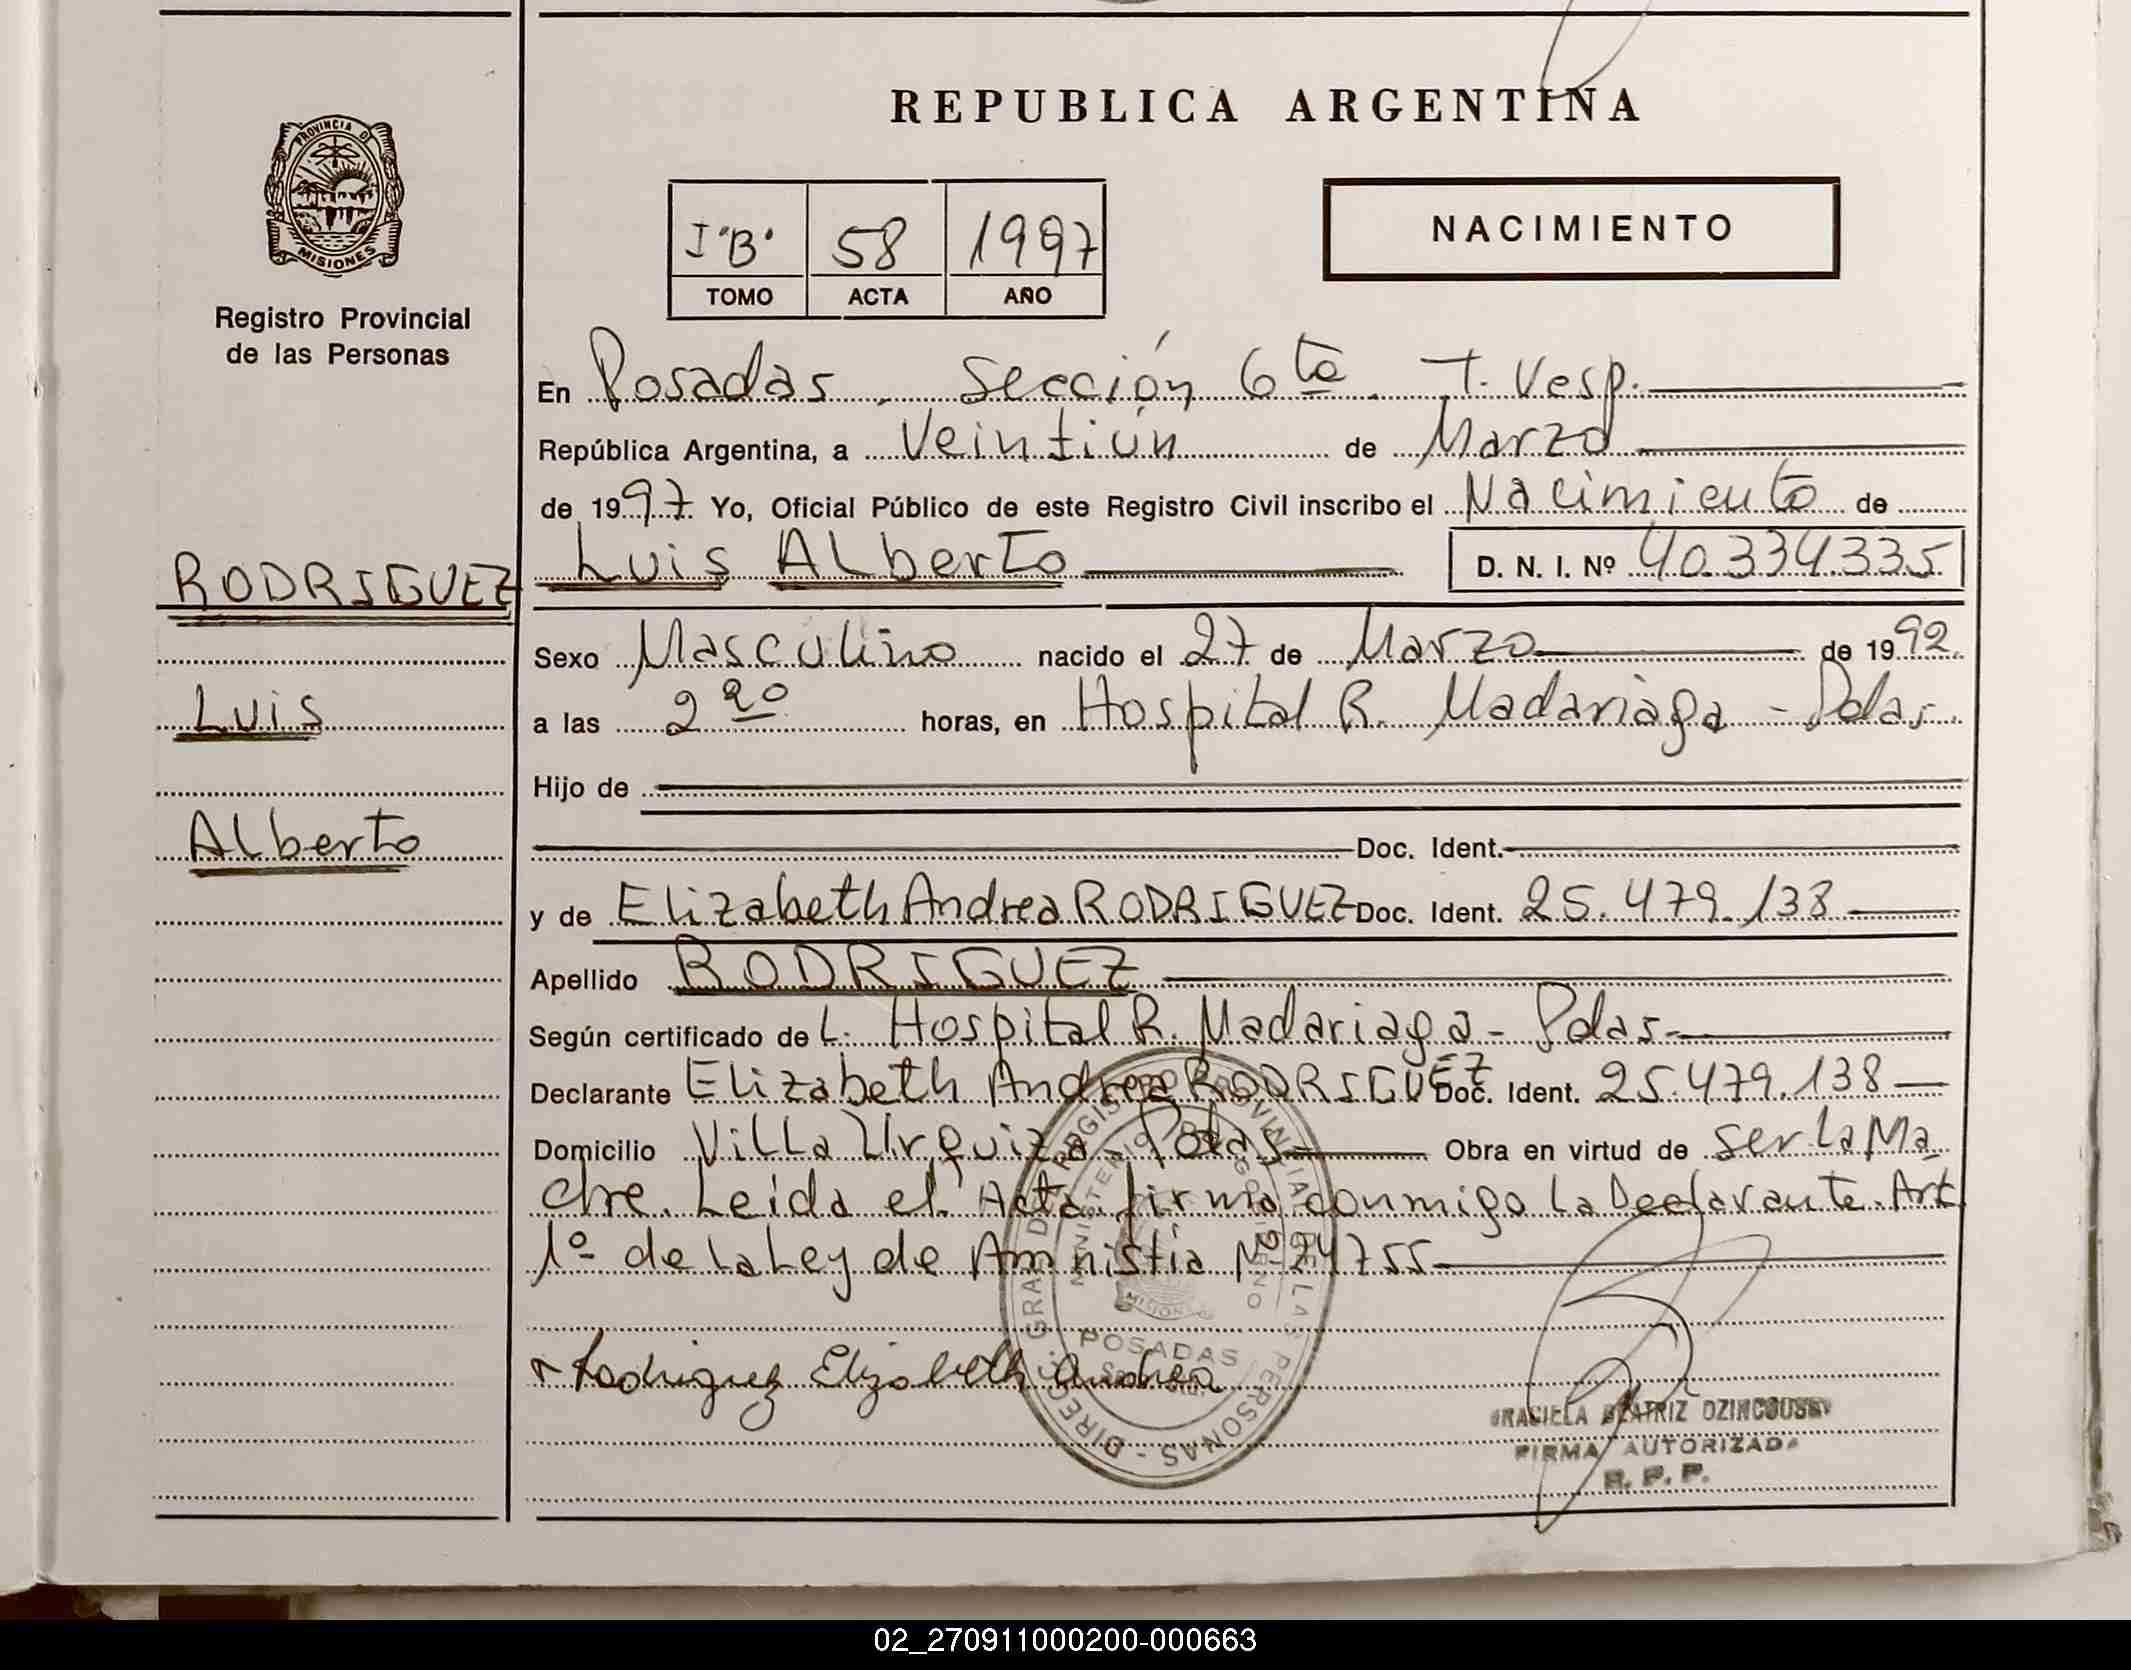 REPUBLICA ARGENTINA
PROVINCIA DE
MISIONES
Registro Provincial
de las Personas
I "B" 58 1997
TOMO ACTA AÑO
NACIMIENTO
En Posadas, Sección 6ta. T. Vesp.
República Argentina, a Veintiún de Marzo
de 1997 Yo, Oficial Público de este Registro Civil inscribo el Nacimiento de
RODRIGUEZ
Luis
Alberto
Luis Alberto D. N. I. Nº 40.334.335
Sexo Masculino nacido el 27 de Marzo de 1992
a las 2 20 horas, en Hospital R. Madariaga - Pdas.
Hijo de
Doc. Ident.
y de Elizabeth Andrea RODRIGUEZ Doc. Ident. 25.479.138
Apellido RODRIGUEZ
Según certificado de L. Hospital R. Madariaga - Pdas.
Declarante Elizabeth Andrea RODRIGUEZ Doc. Ident. 25.479.138
Domicilio Villa Urquiza - Pdas. Obra en virtud de ser la Ma
dre. Leida el Acta firma conmigo la Declarante. Art
1º de la Ley de Amnistía Nº 24755
Rodriguez Elizabeth Andrea
MISIONES
POSADAS
GRACIELA BEATRIZ
FIRMA AUTORIZADA
R. P. P.
02_270911000200-000663